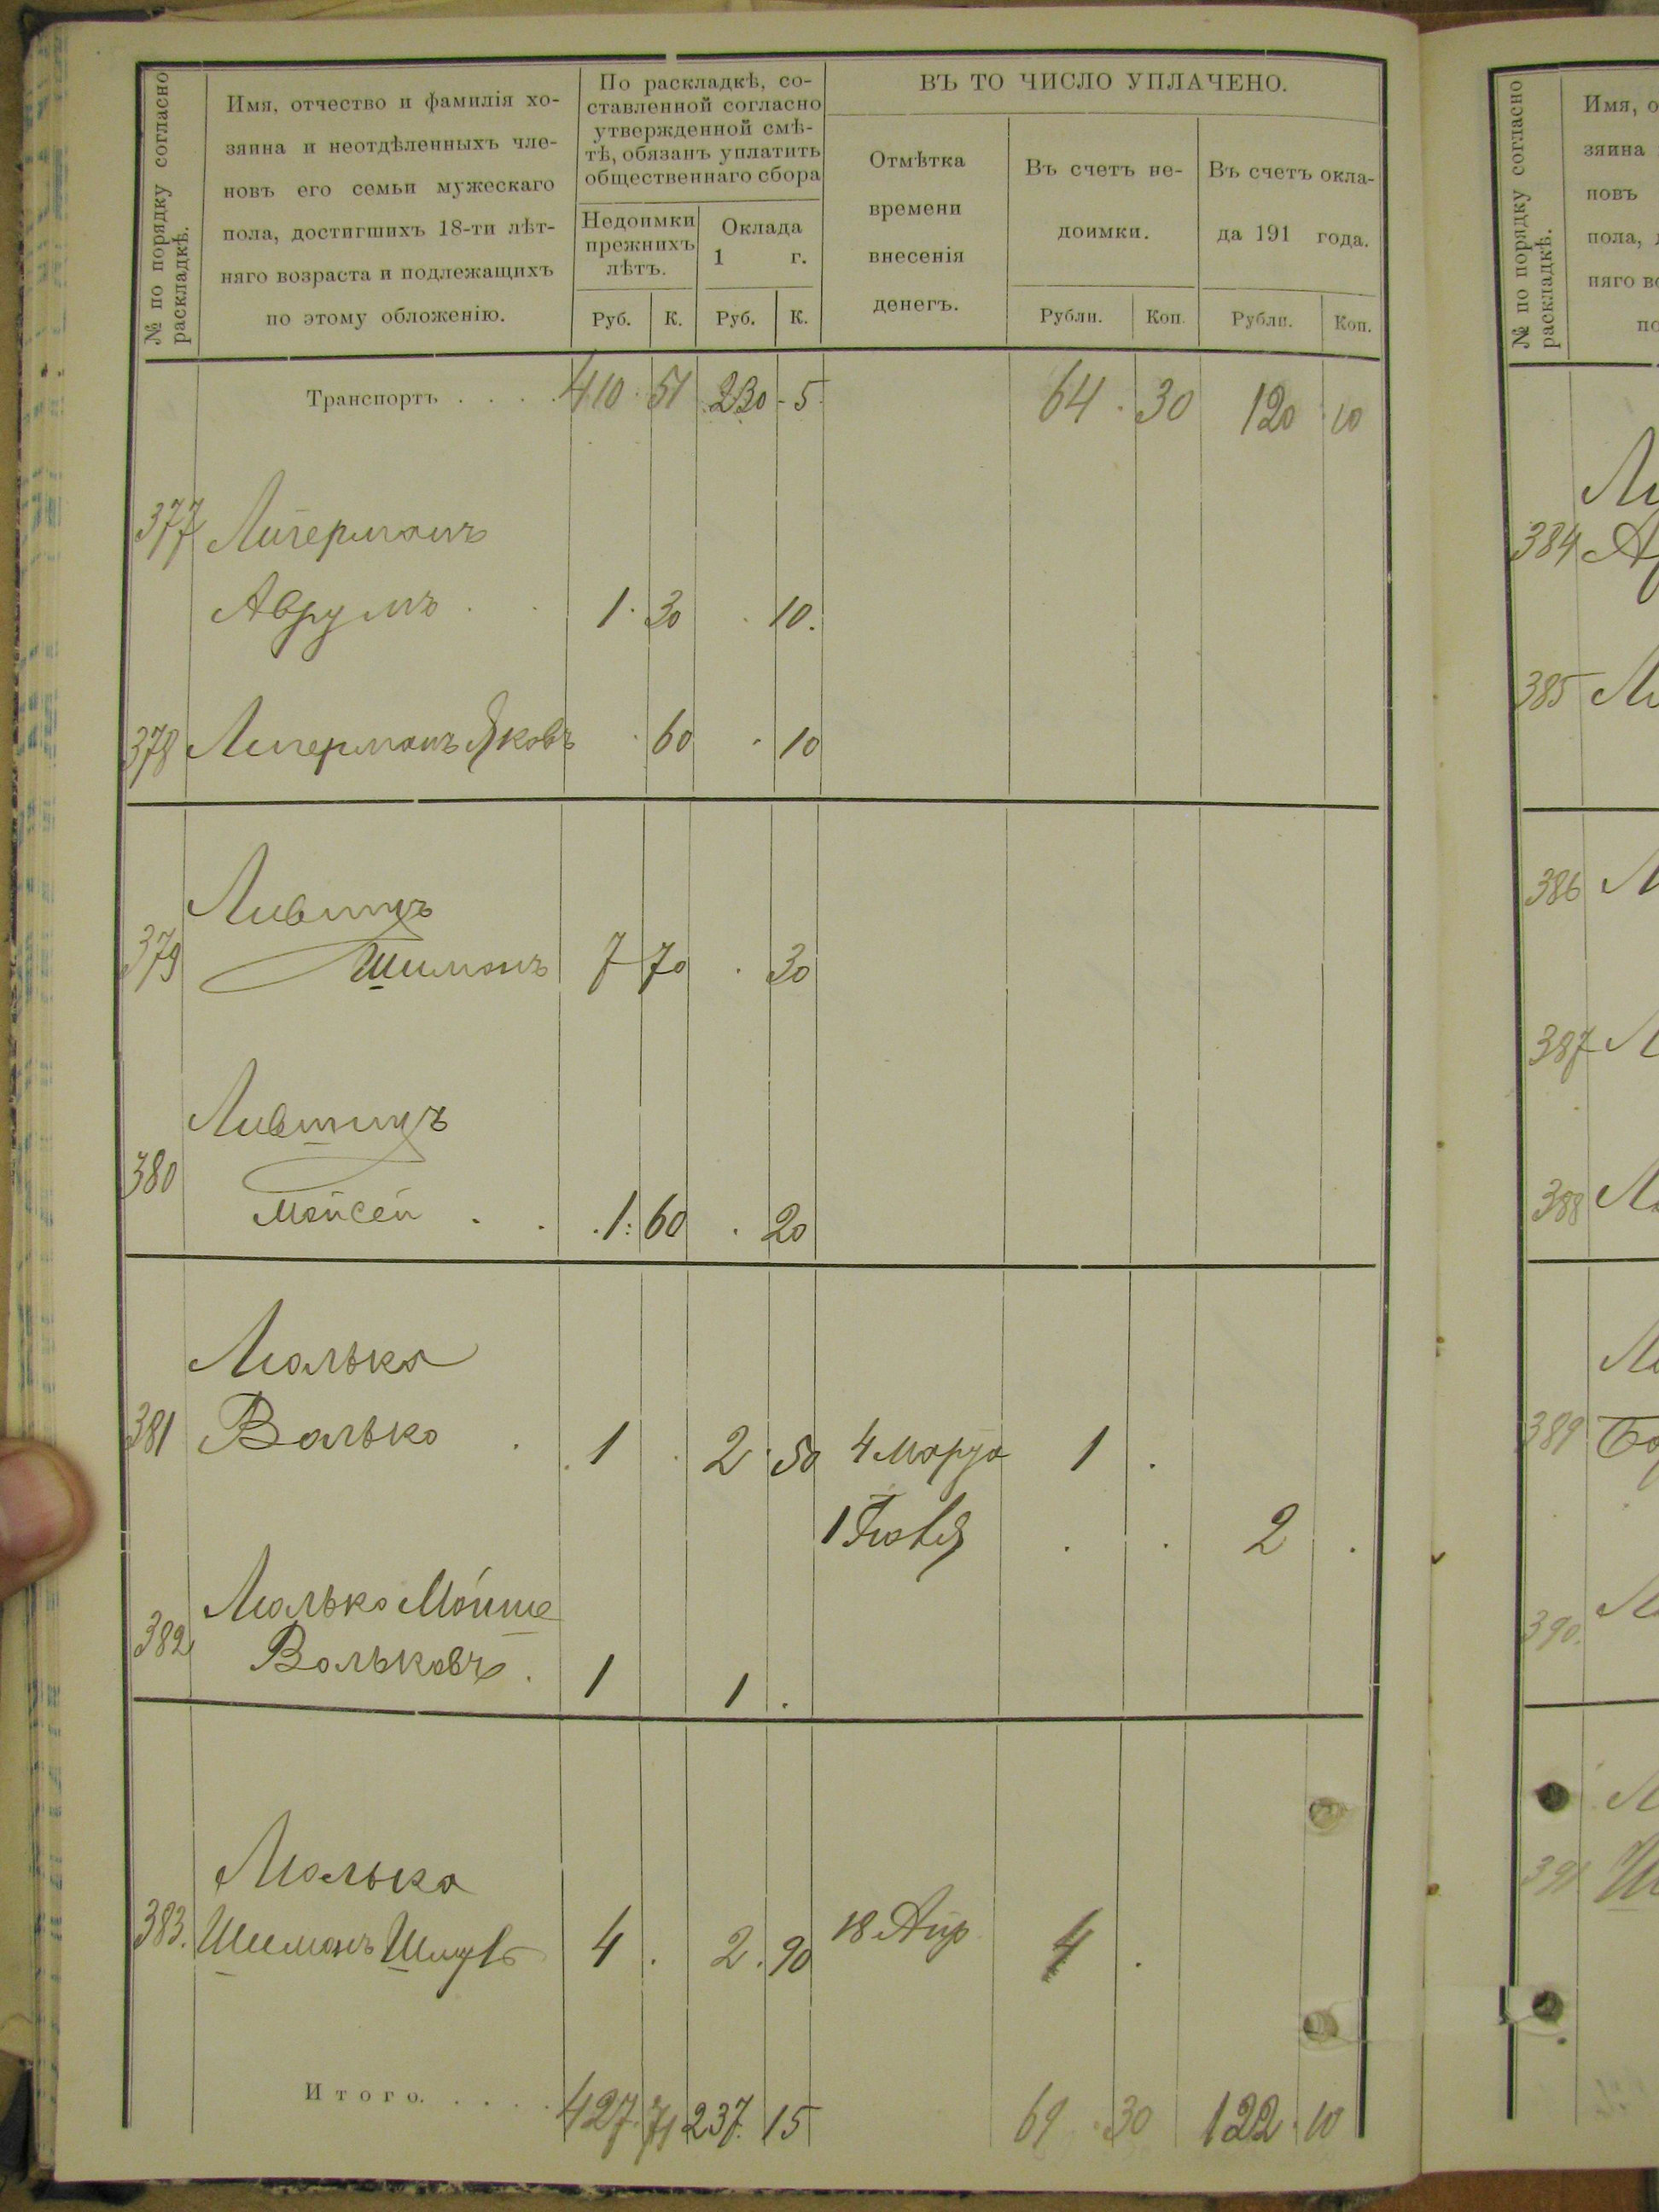 № по порядку согласно
раскладкѣ.
Имя, отчество и фамилія хо-
зяина и неотдѣленныхъ чле-
новъ его семьи мужескаго
пола, достигшихъ 18-ти лѣт-
няго возраста и подлежащихъ
по этому обложенію.
По раскладкѣ, со-
ставленной согласно
утвержденной смѣ-
тѣ, обязанъ уплатить
общественнаго сбора
Недоимки
прежнихъ
лѣтъ.
Оклада
1 г.
Руб. К. Руб. К.
ВЪ ТО ЧИСЛО УПЛАЧЕНО.
Отмѣтка
времени
внесенія
денегъ.
Въ счетъ не-
доимки.
Въ счетъ окла-
да 191 года.
Рубли. Коп. Рубли. Коп.
Транспортъ . . . . 410 51 230 5 64 30 120 10
377 Лигерманъ
Аврумъ . . 1 30 10
378 Лигерманъ Яковъ 60 10
Лившицъ
379 Шиманъ 7 70 30
Лившицъ
380
Мойсей . . 1 60 20
Лялько
381 Валько . 1 2 50 4 Марта 1
2
382 Лялько Мойше
Вольковъ . 1 1
Лялько
383. Шиманъ 4 2 90 18 Апр 4
Итого. . . . . 427 71 237 15 69 30 122 10
№ по порядку согласно
раскладкѣ.
384
385
386
387
388
389
390.
391